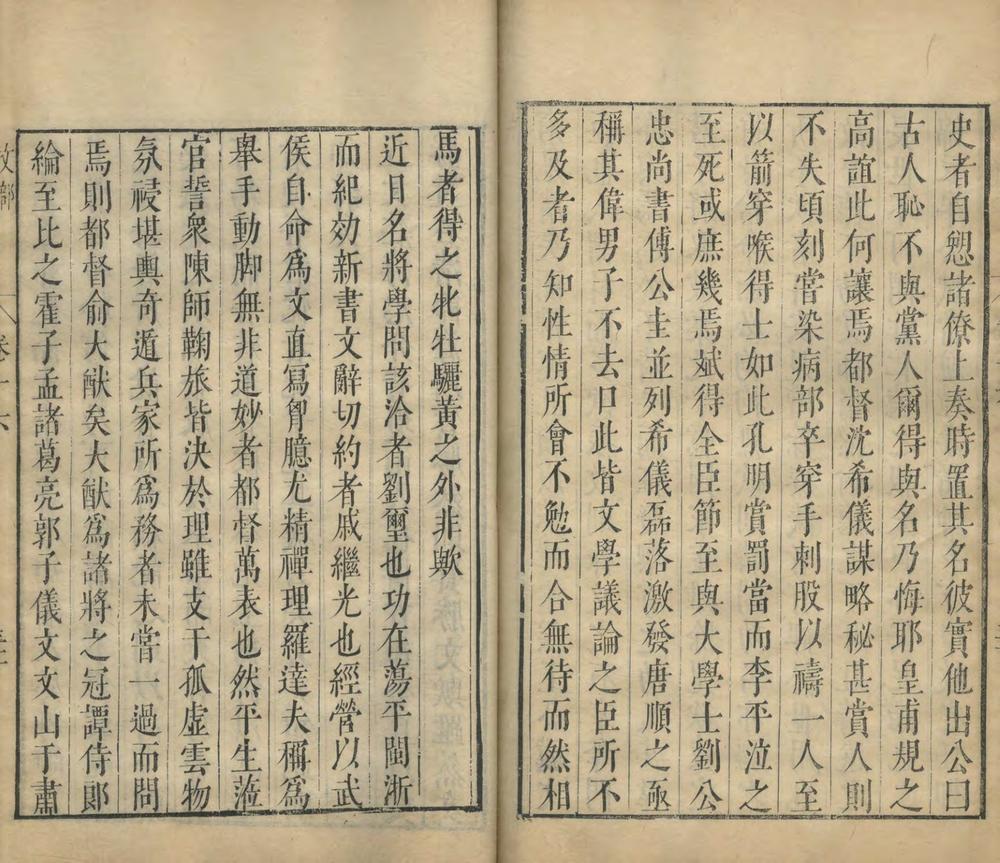 史者自愬諸僚上奏時置其名彼實他出公曰
古人恥不與黨人爾得與名乃悔耶皇甫規之
高誼此何讓焉都督沈希儀謀略秘甚賞人則
不失頃刻嘗染病部卒穿手刺股以禱一人至
以箭穿喉得士如此孔明賞罰當而李平泣之
至死或庶幾焉斌得全臣節至與大學士劉公
忠尚書傅公圭並列希儀磊落激發唐順之亟
稱其偉男子不去口此皆文學議論之臣所不
多及者乃知性情所會不勉而合無待而然相
馬者得之牝牡驪黃之外非歟
近日名將學問該洽者劉璽也功在蕩平閩浙
而紀効新書文辭切約者戚繼光也經營以武
侯自命爲文直寫胷臆尤精禪理羅達夫稱爲
舉手動脚無非道妙者都督萬表也然平生蒞
官誓衆陳師鞠旅皆決於理雖支干孤虛雲物
氛祲堪輿奇遁兵家所爲務者未嘗一過而問
焉則都督俞大猷矣大猷爲諸將之冠譚侍郞
綸至比之霍子孟諸葛亮郭子儀文文山于肅
卷十六